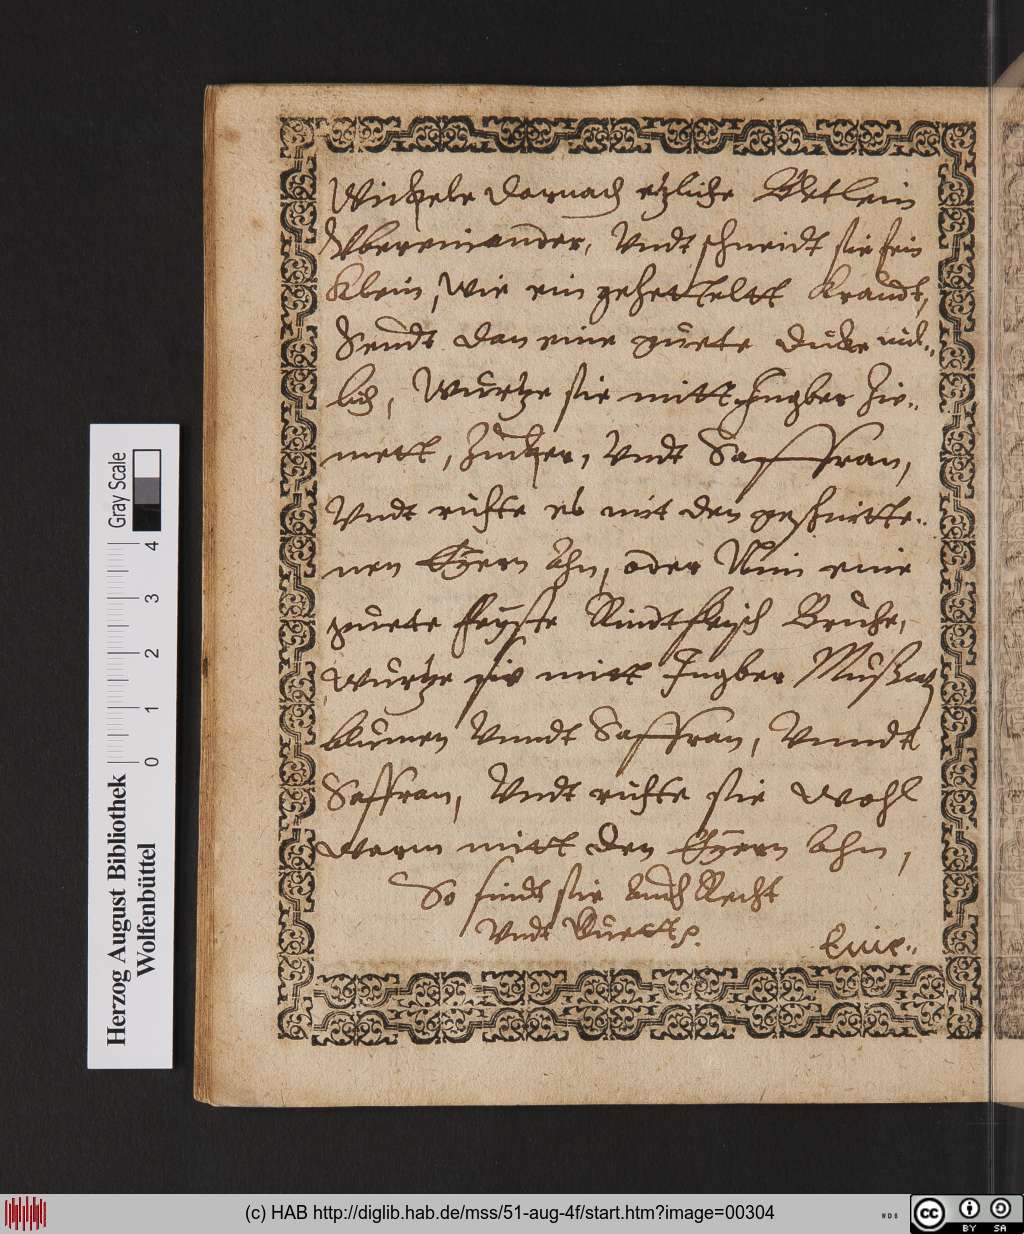 Wickele darnach etzliche Bletlein
Vbereinander, Vndt schneidt sie fein
Klein, Wie ein gehetteltt Kraudt,
Seudt dan eine guete dicke mil=
lich, Würtze sie mitt Ingber Zie=
mett, Zucker, Vndt Saffran,
Vndt richte es mit den geschnitte=
nen Eyern ahn, oder Nim eine
guete feyste Rindtfleisch Brühe,
würtze sie mitt Ingber Mußcatt
blumen Vnndt Saffran, Vnndt
Saffran, Vndt richte sie wohl
warm mitt den Eyern ahn,
So sindt sie auch Recht
Vndt Guett
Eine=
Gray Scale
4
3
2
1
0
Herzog August Bibliothek
Wolfenbüttel
(c) HAB http://diglib.hab.de/mss/51-aug-4f/start.htm?image=00304
WDB
cc
BY SA